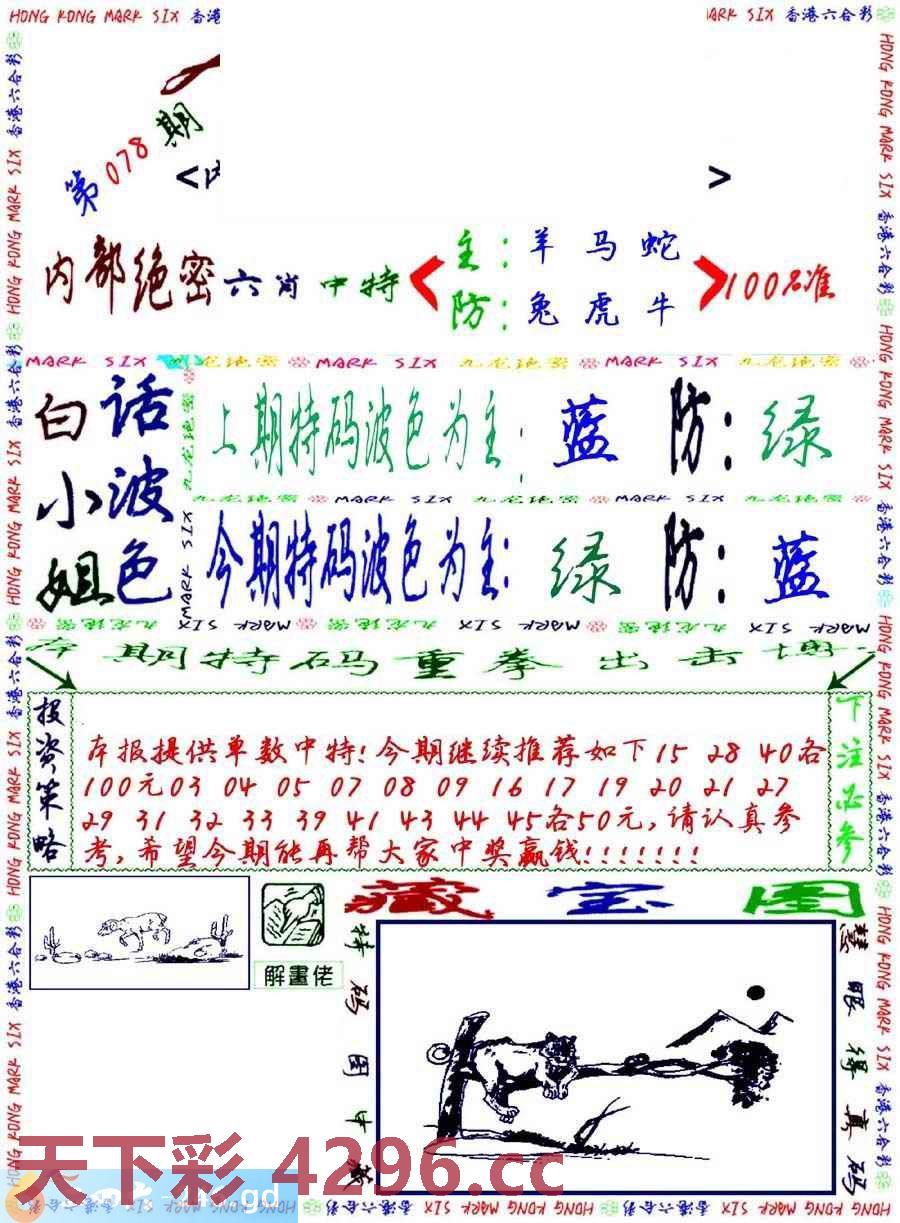 HONG KONG MARK SIX 香港
MARK SIX 香港六合彩
第078期
< >
内部绝密六肖中特
主：羊马蛇
防：兔虎牛
100%准
MARK SIX 九龙绝密 MARK SIX 九龙绝密 MARK SIX 九龙绝密
白话
小波
姐色
上期特码波色为主：蓝 防：绿
九龙绝密 MARK SIX 九龙绝密 MARK SIX 九龙绝密
今期特码波色为主：绿 防：蓝
九龙绝密 MARK SIX 九龙绝密 MARK SIX 九龙绝密 MARK SIX
期特码重拳出击
投资策略
本报提供单数中特!今期继续推荐如下15 28 40各
100元03 04 05 07 08 09 16 17 19 20 21 27
29 31 32 33 39 41 43 44 45各50元,请认真参
考,希望今期能再帮大家中奖赢钱!!!!!!!
下注必参
解畫佬
藏宝图
特码图中藏
慧眼得真码
天下彩4296.cc
gd
HONG KONG MARK SIX 香港六合彩